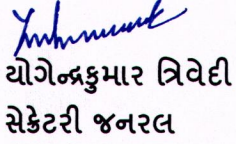 યોગેન્દ્રકુમાર ત્રિવેદી
સેક્રેટરી જનરલ